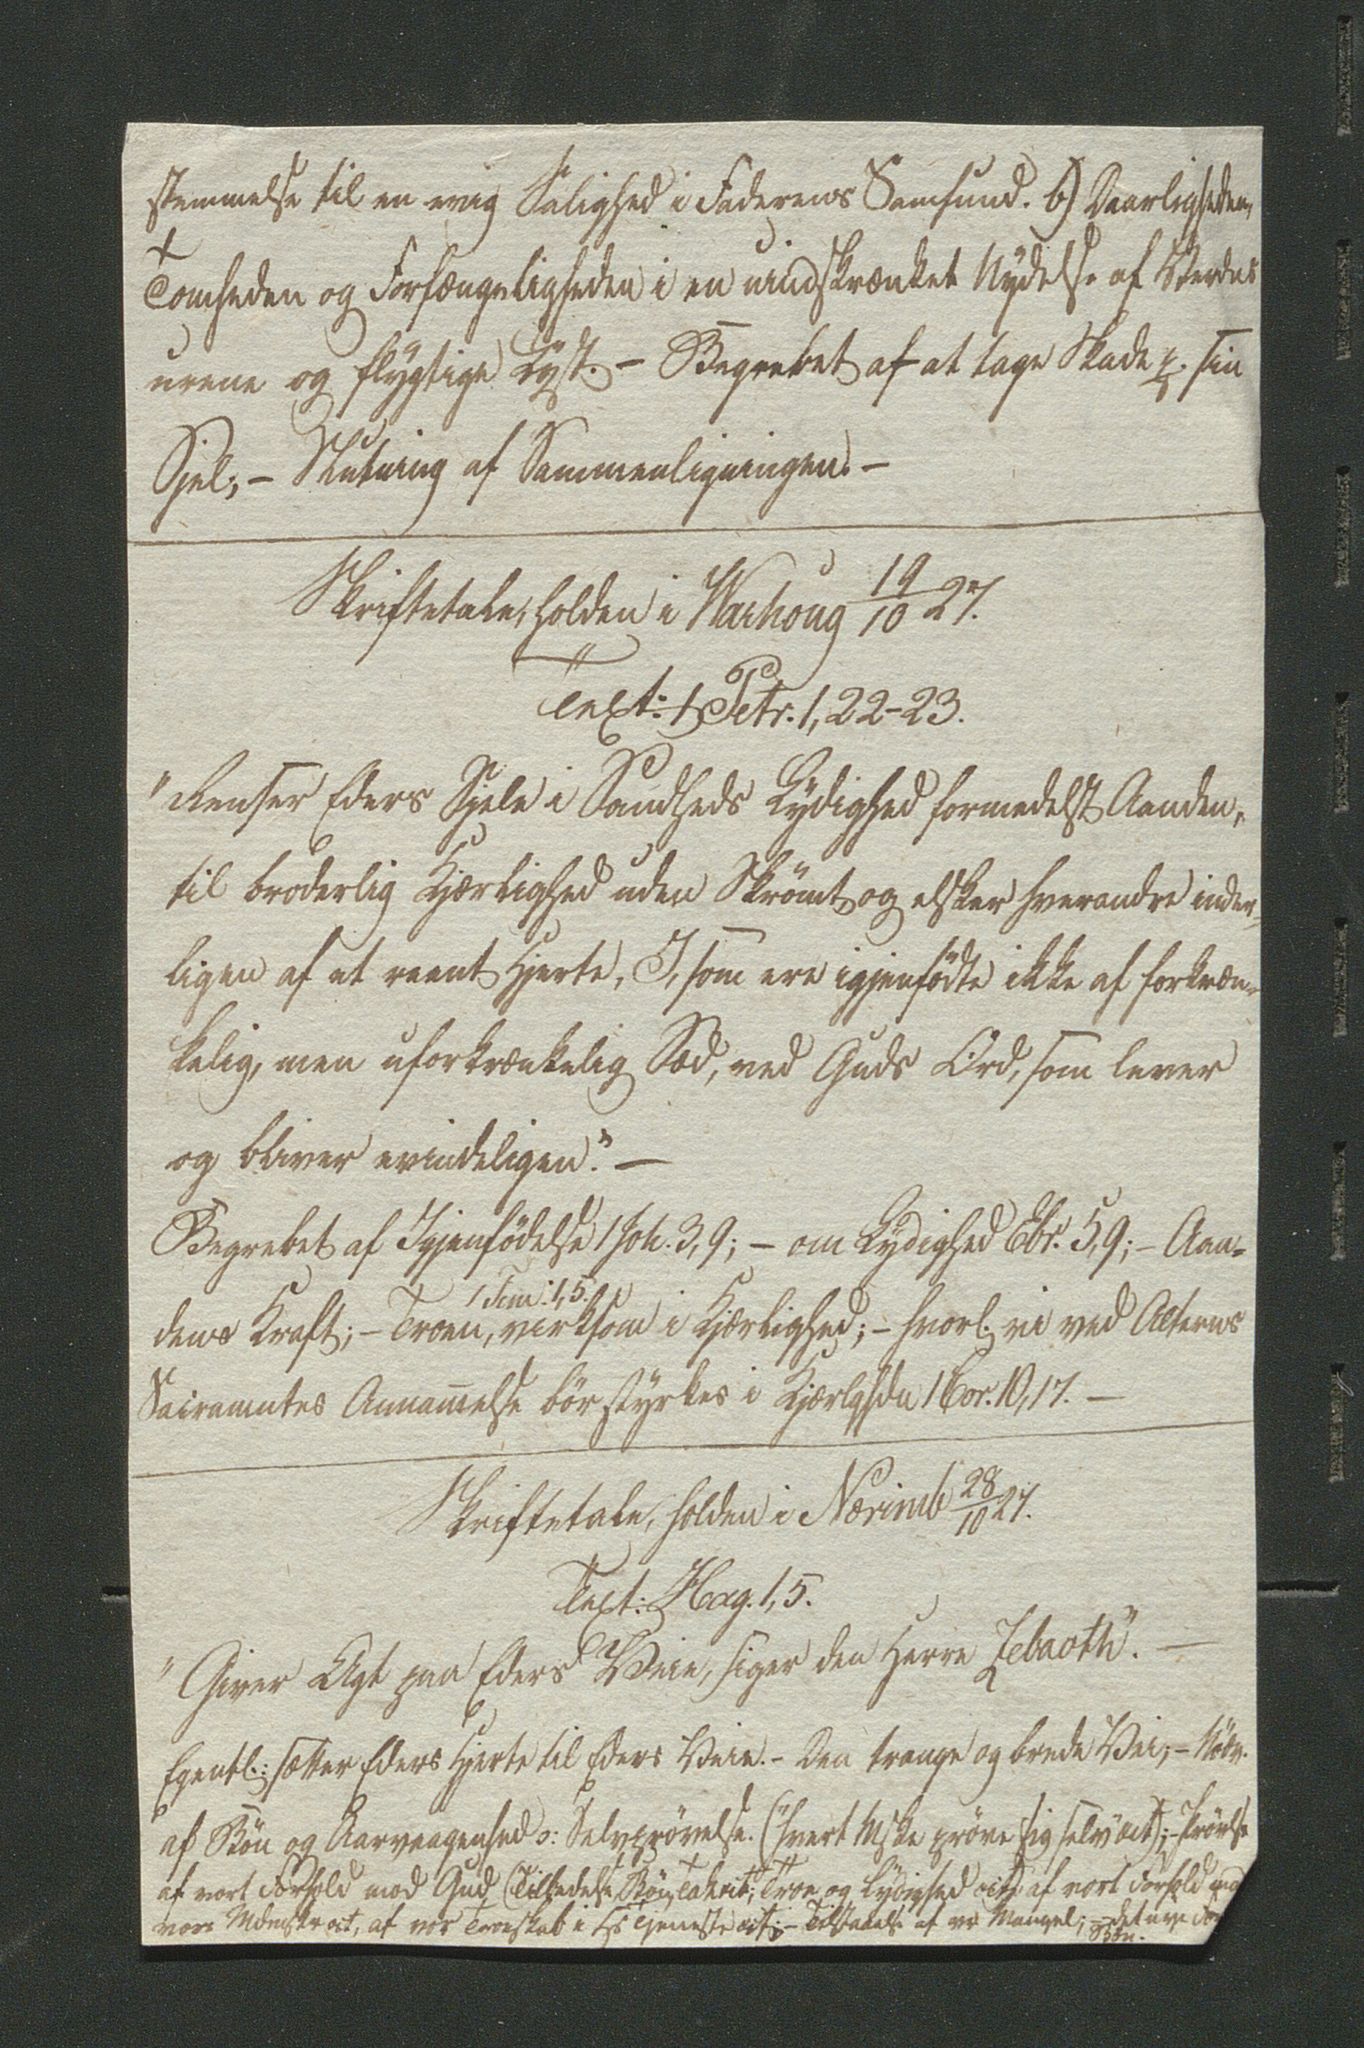 stemmelse til en evig Salighed i Faderens Samfund. b) Daarligheden,
Tomheden og Forfængeligheden i en uindskrænket Nydelse af Verdens
urene og flygtige Lyst. – Begrebet af at tage Skade p. sin
Sjel; – Slutning af Sammenligningen. –
Skriftetale, holden i Warhoug 19/10 27.
Text: 1 Petr. 1, 22-23.
"Renser Eders Sjele i Sandheds Lydighed formedelst Aanden,
til broderlig Kjærlighed uden Skrömt, og elsker hverandre inder-
ligen af et reent Hjerte, I, som ere igjenfödte ikke af forkræn-
kelig, men uforkrænkelig Sæd, ved Guds Ord, som lever
og bliver evindeligen." –
Begrebet af Igjenfödelse 1 Joh. 3, 9; – om Lydighed Ebr. 5, 9; – Aan-
1 Tim. 1, 5.
dens Kraft; – Troen, virksom i Kjærlighed; – hvorl. vi ved Alterens
Sacramntes Annam̄else bör styrkes i Kjærlghdn 1 Cor. 10, 17. –
Skriftetale, holden i Nærimb 28/10 27.
Text: Hag. 1, 5.
"Giver Agt paa Eders Veie, siger den Herre Zebaoth". –
Egentl.: sætter Eders Hjerte til Eders Veie. – Den trange og brede Vei; – Nödv.
af Bön og Aarvaagenhed ɔ: Selvprövelse. ("hvert Mske pröve sig selv" cit); – Prövelse
af vort Forhold mod Gud (Tilbedelse, Bön, Taknml., Troe og Lydighed cit) af vort Forhold mod
vore Mdmskr cit, af vor Troeskab i Hs Tjeneste cit; – Tilstaaelse af vor Mangel; – det nye For
Bön.